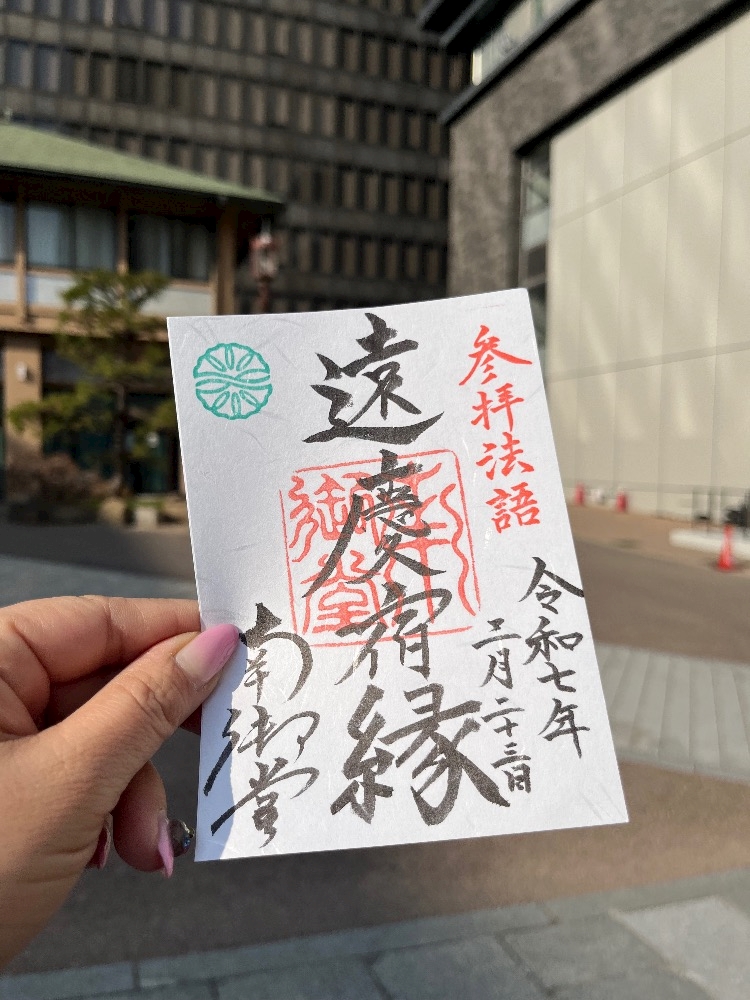 参拝法語
令和七年
二月二十三日
遠慶宿縁
南御堂
南御堂